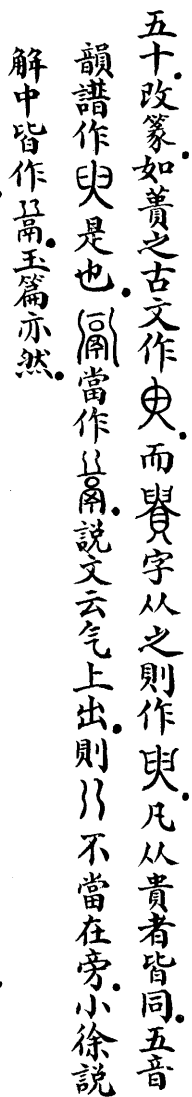 五十．改篆．如蕢之古文作．而貴字从之則作．凡从貴者皆同．五音
韻譜作是也．䰜當作．說文云气上出．則不當在旁．小徐說
解中皆作．玉篇亦然．